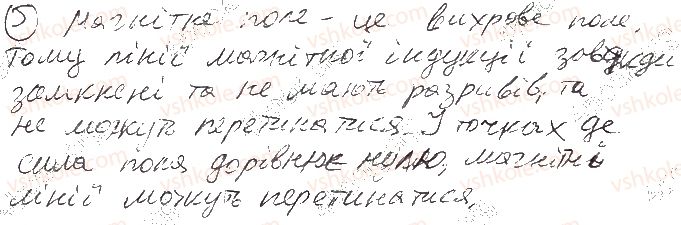 5 Магнітне поле - це вихрове поле.
Тому лінії магнітної індукції завжди
замкнені та не мають розривів, та
не можуть перетинатися. У точках де
сила поля дорівнює нулю, магнітні
лінії можуть перетинатися.